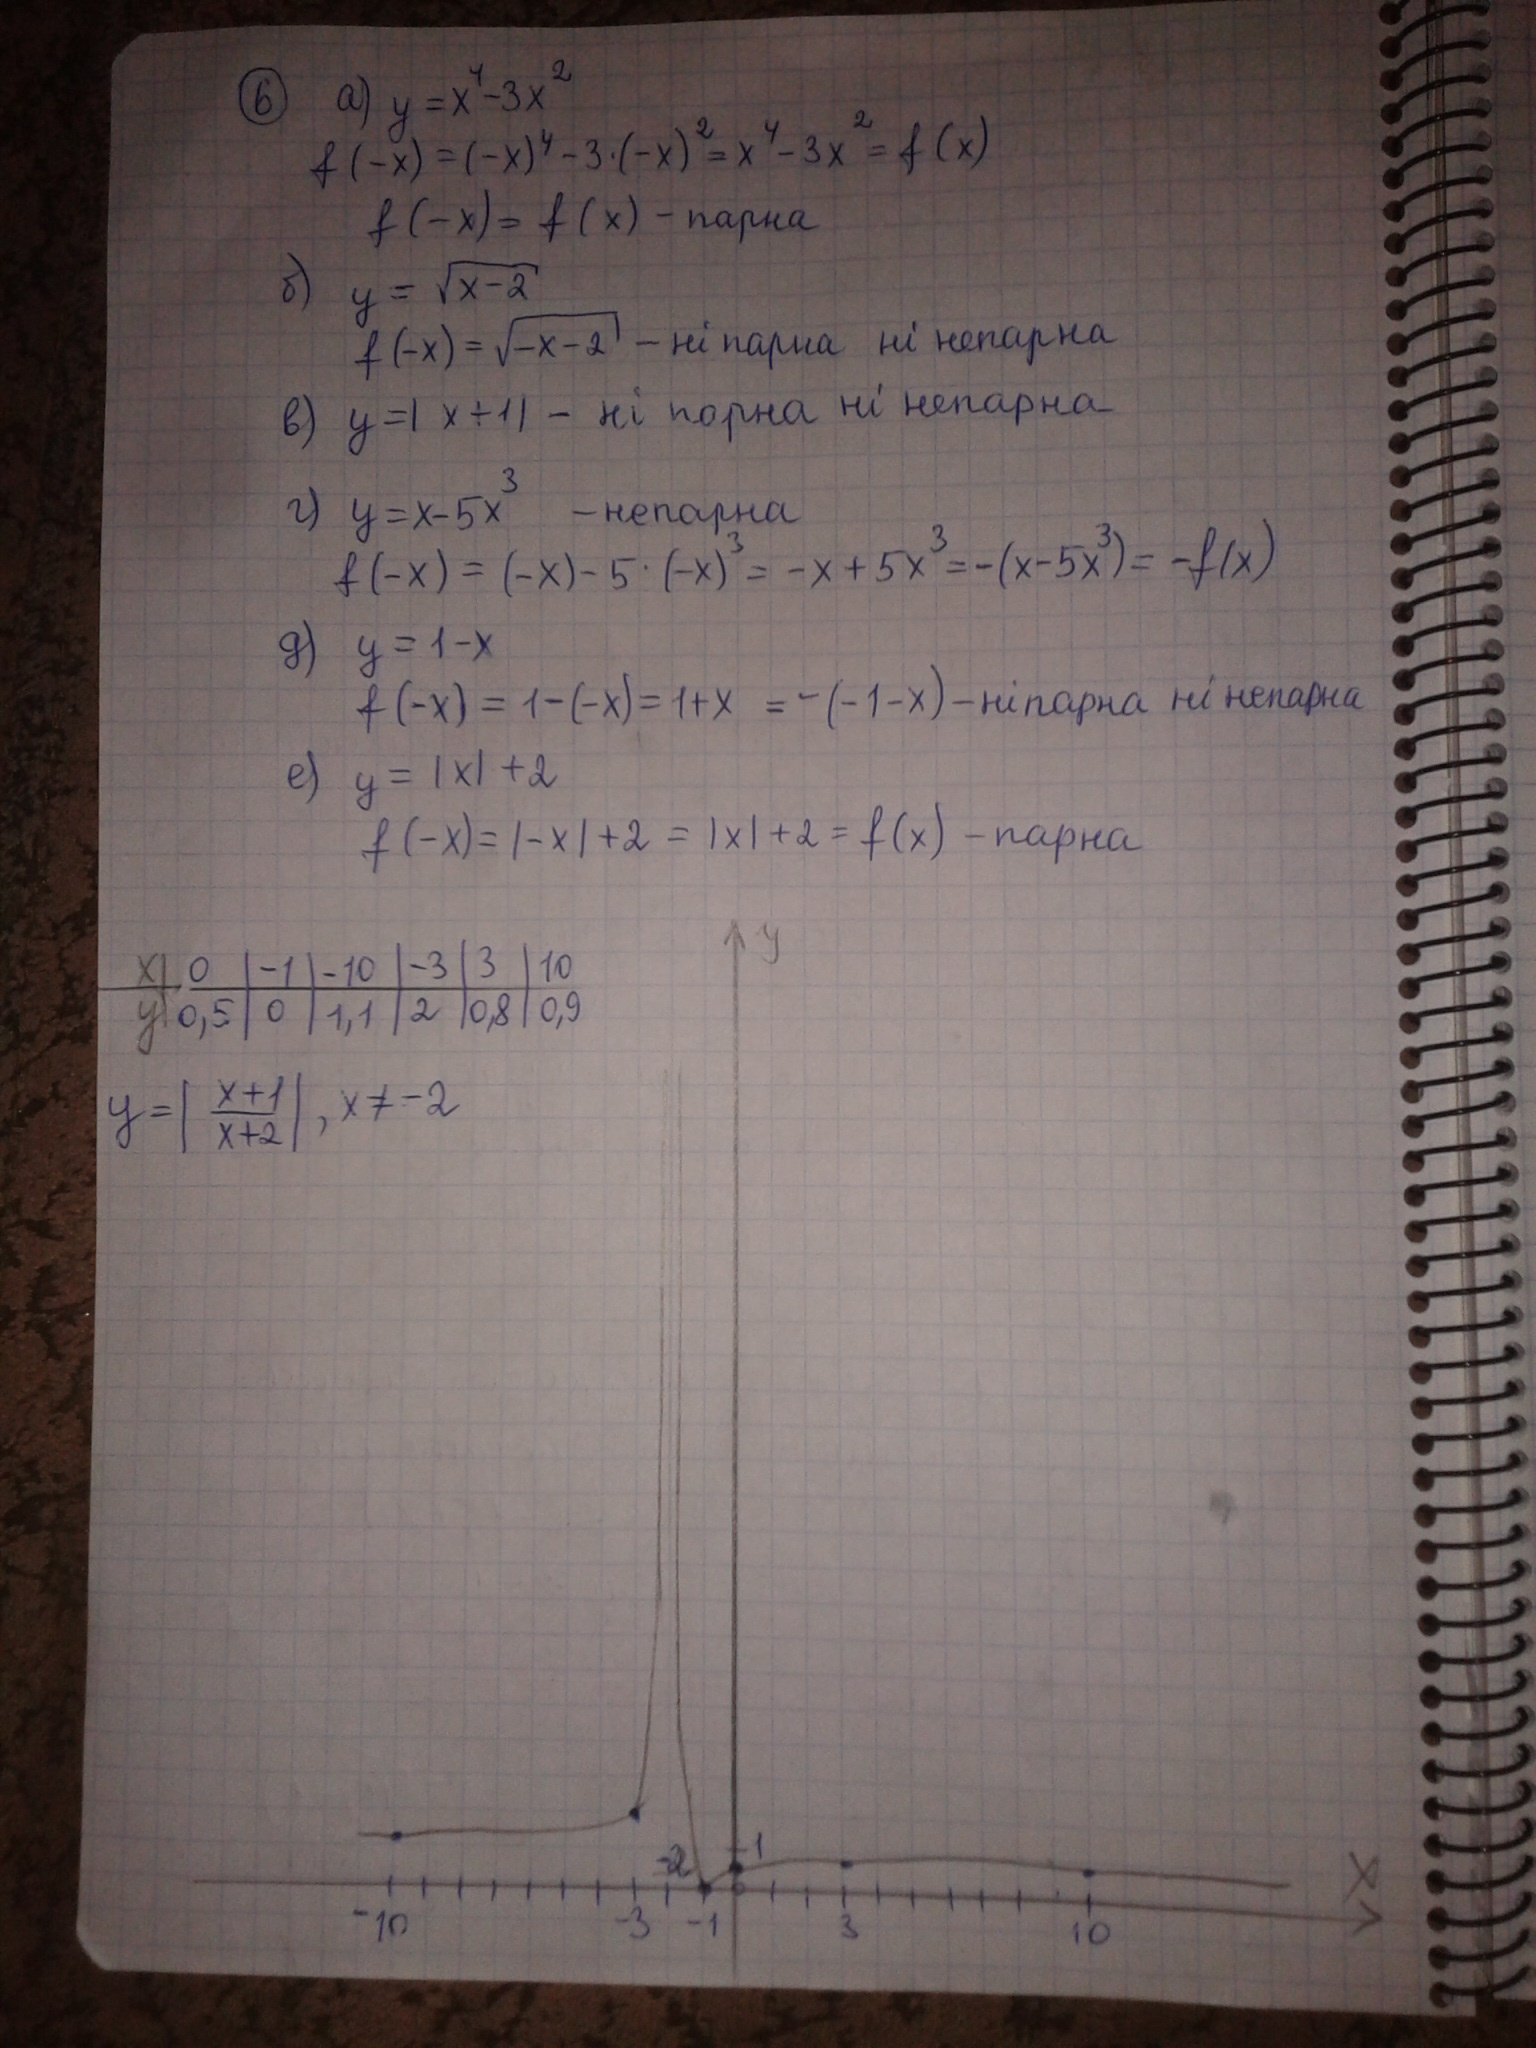 6 а) y = x⁴ - 3x²
f(-x) = (-x)⁴ - 3·(-x)² = x⁴ - 3x² = f(x)
f(-x) = f(x) - парна
б) y = √(x-2)
f(-x) = √(-x-2) - ні парна ні непарна
в) y = |x+1| - ні парна ні непарна
г) y = x - 5x³ - непарна
f(-x) = (-x) - 5·(-x)³ = -x + 5x³ = -(x - 5x³) = -f(x)
д) y = 1 - x
f(-x) = 1 - (-x) = 1 + x = -(-1-x) - ні парна ні непарна
е) y = |x| + 2
f(-x) = |-x| + 2 = |x| + 2 = f(x) - парна
y
x | 0 | -1 | -10 | -3 | 3 | 10
y | 0,5 | 0 | 1,1 | 2 | 0,8 | 0,9
y = |(x+1)/(x+2)|, x ≠ -2
-2 1
x
-10 -3 -1 0 3 10